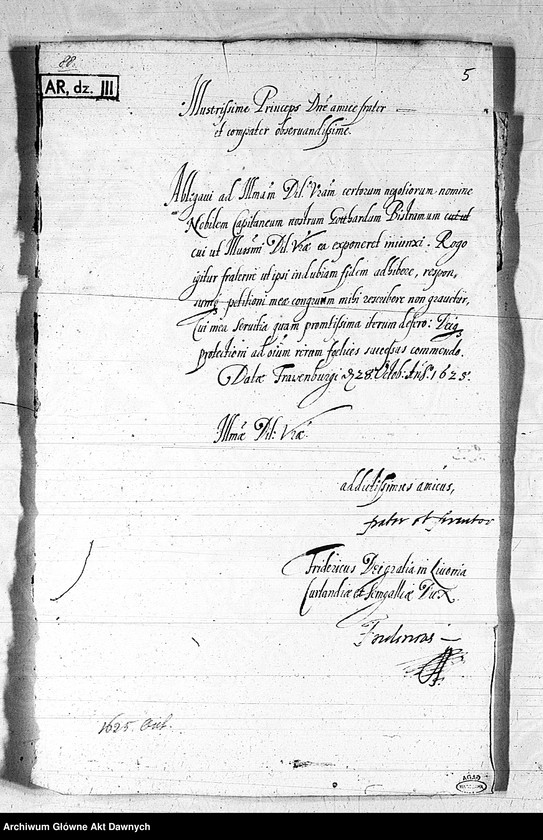 88.
AR, dz. III
5
Illustrissime Princeps Dne amice frater
et compater observandissime.
Ablegavi ad Illmam Dil: Vram certorum negotiorum nomine
Nobilem Capitaneum nostrum Gotthardum Bistramum cui ut
cui ut Illussmi Dil: Vrae ea exponeret iniunxi. Rogo
igitur fraterne ut ipsi indubiam fidem adhibere, respon,
sumq petitioni meae congruum mihi rescribere non gravetur,
Cui mea servitia quam promtissima iterum defero: Deiq
protectioni ad oium rerum foelices successus commendo.
Datae Fravenburgi 28 Octob: An: 1625.
Illmae Dil: Vrae
addictissimus amicus,
frater et servitor
Fridericus Dei gratia in Livonia
Curlandiae et Semgalliae Dux
1625. Oct.
AGAD
WARSZAWA
Archiwum Główne Akt Dawnych